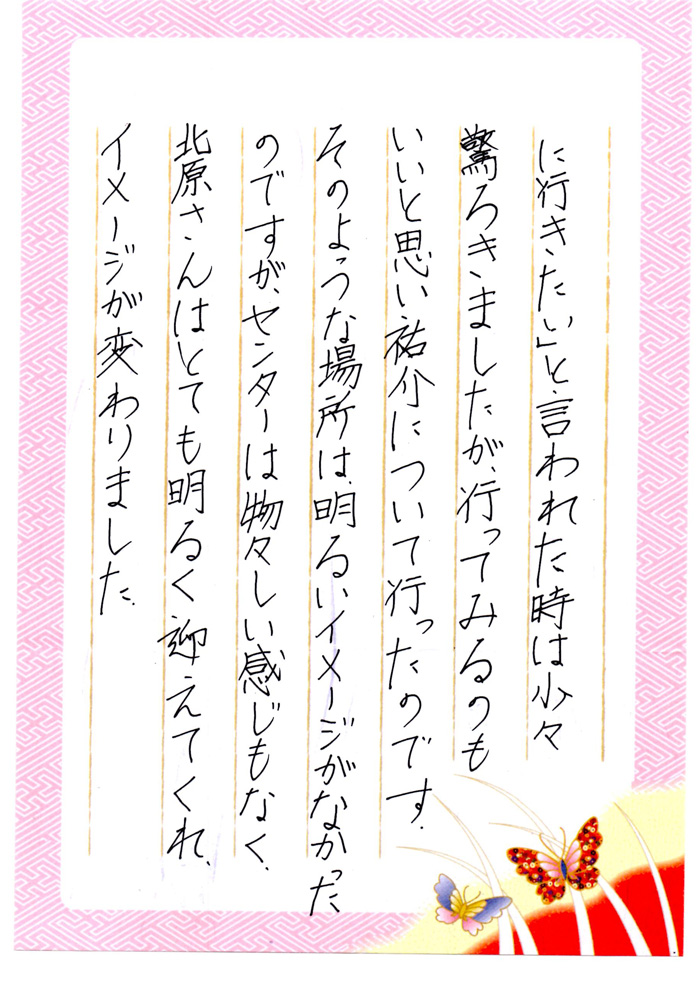 に行きたい」と言われた時は少々
驚ろきましたが、行ってみるのも
いいと思い、祐介について行ったのです。
そのような場所は、明るいイメージがなかった
のですが、センターは物々しい感じもなく、
北原さんはとても明るく迎えてくれ、
イメージが変わりました。